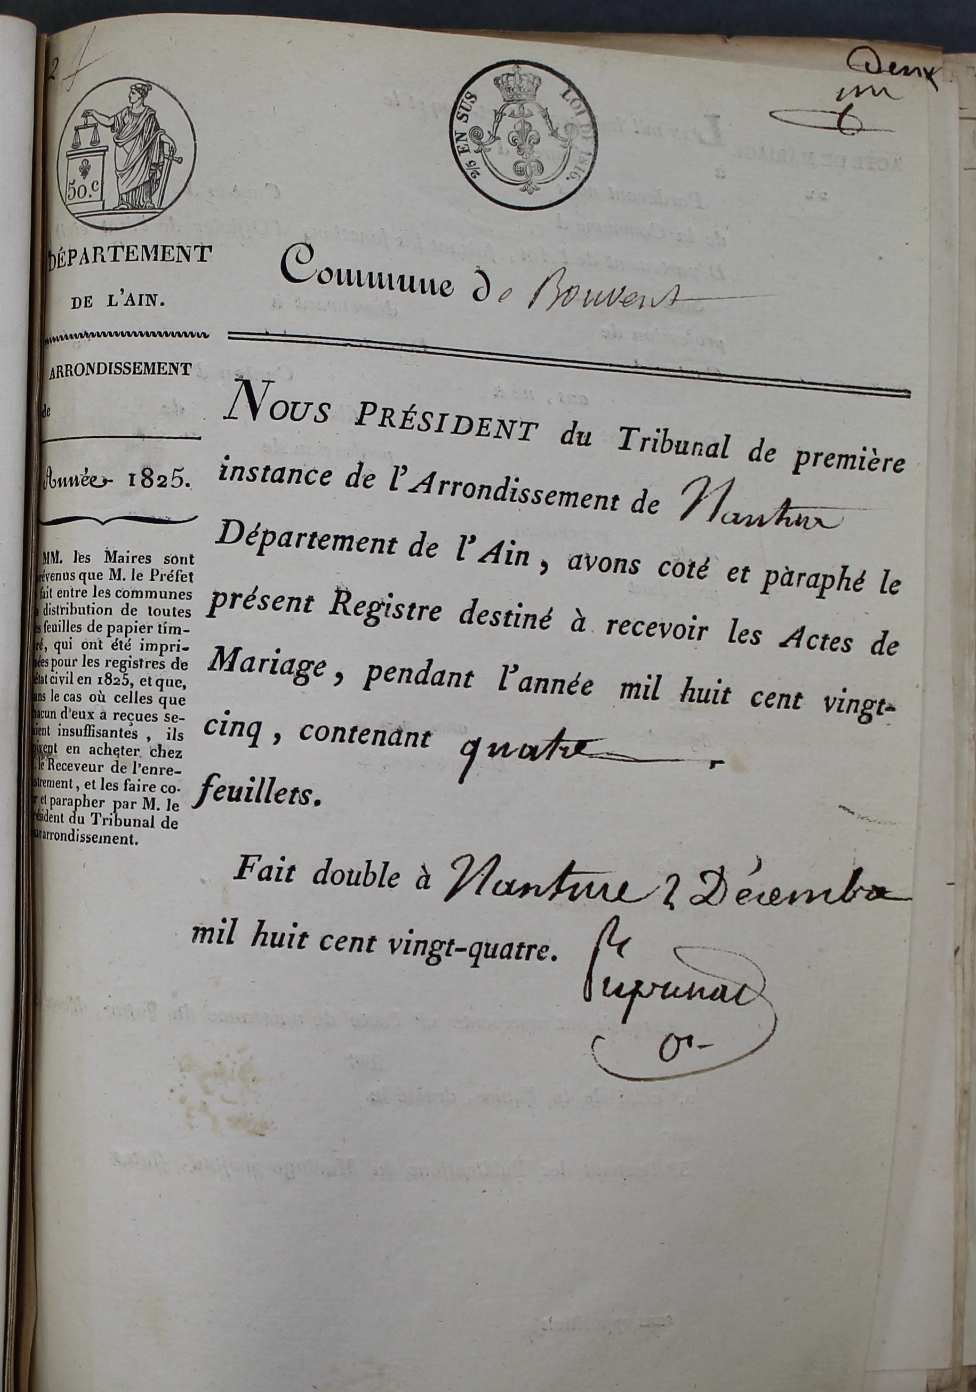 2
50.c
2/5 EN SUS
LOI DE 1816.
Deux
un
DÉPARTEMENT
DE L'AIN.
Commune de Bouvent
ARRONDISSEMENT
de
Année 1825.
MM. les Maires sont
révenus que M. le Préfet
fait entre les communes
distribution de toutes
s feuilles de papier tim-
ré, qui ont été impri-
ées pour les registres de
état civil en 1825, et que,
ans le cas où celles que
hacun d'eux a reçues se-
aient insuffisantes, ils
oivent en acheter chez
le Receveur de l'enre-
strement, et les faire co-
r et parapher par M. le
résident du Tribunal de
ur arrondissement.
NOUS PRÉSIDENT du Tribunal de première
instance de l'Arrondissement de Nantua
Département de l'Ain, avons coté et pàraphé le
présent Registre destiné à recevoir les Actes de
Mariage, pendant l'année mil huit cent vingt-
cinq, contenant quatre
feuillets.
Fait double à Nantua 2 Décembre
mil huit cent vingt-quatre.